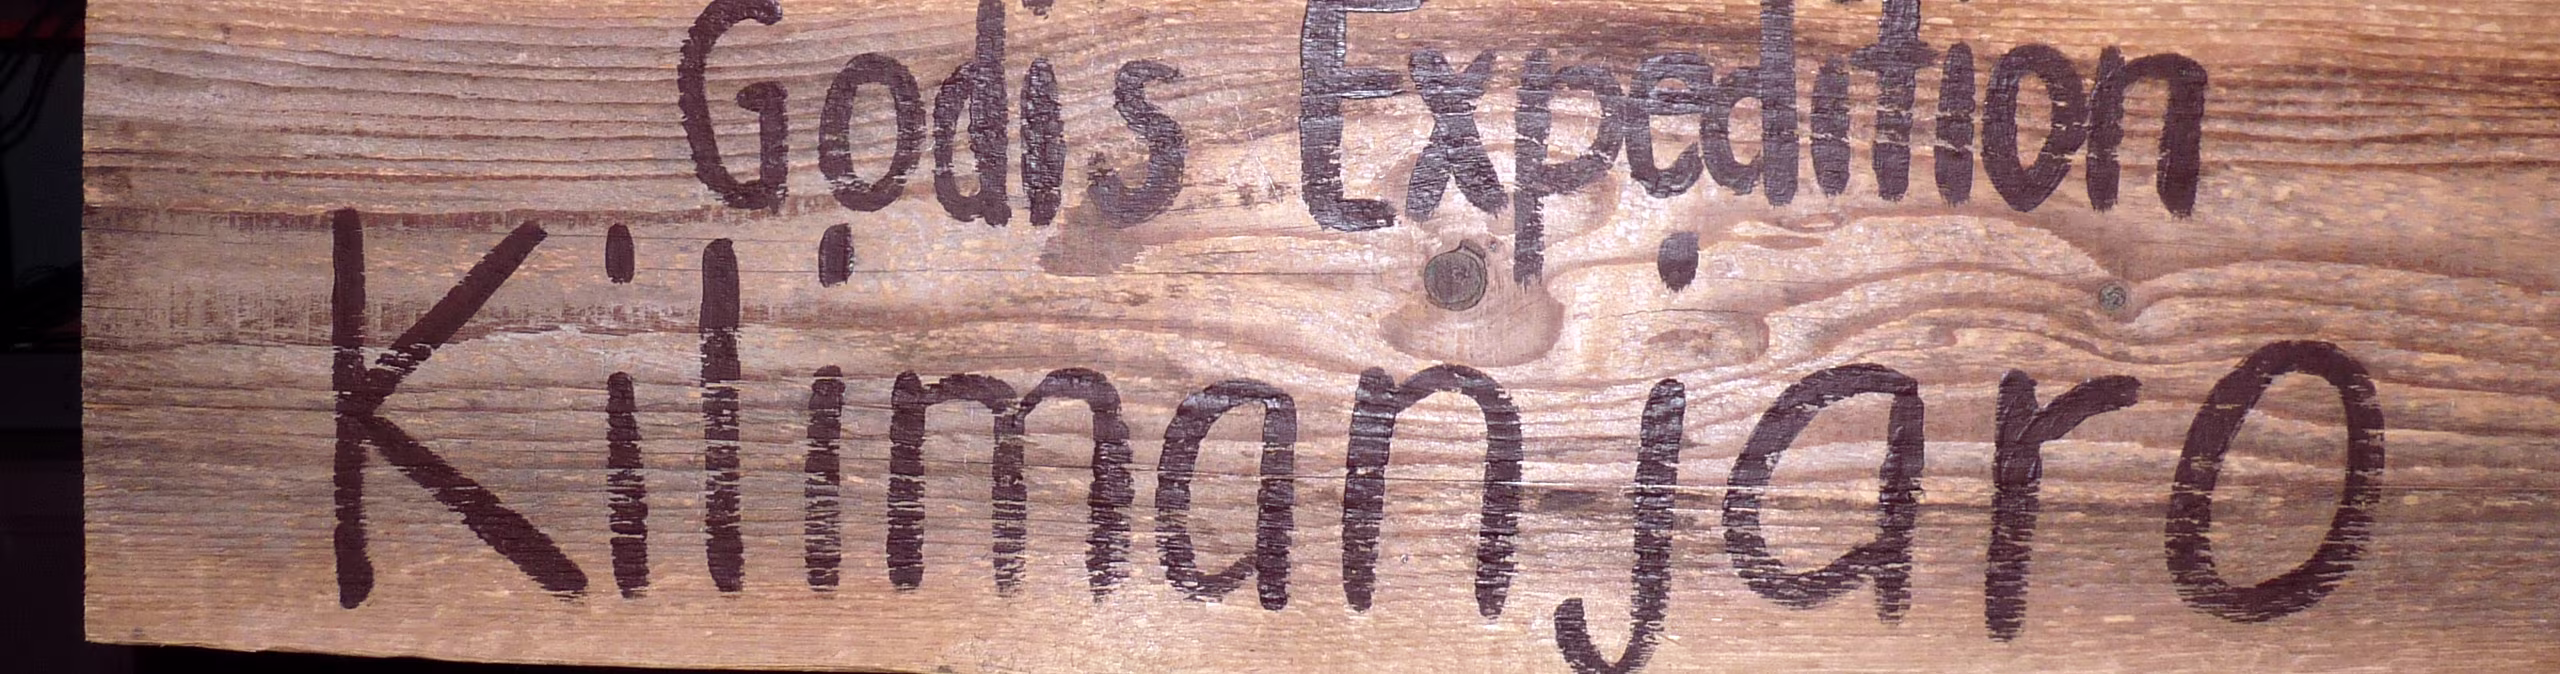 Godis Expedition
Kilimanjaro